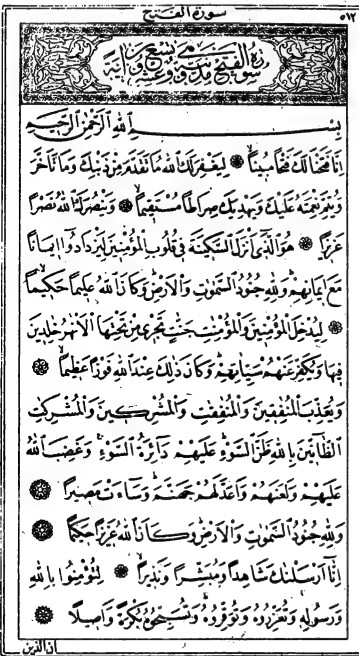 سورة الفتح
٥١٢
سورة الفتح مدنية وهي تسع وعشرون اية
بِسْمِ اللّٰهِ الرَّحْمٰنِ الرَّحِيمِ
اِنَّا فَتَحْنَا لَكَ فَتْحاً مُبيناًۙ ۞ لِيَغْفِرَ لَكَ اللّٰهُ مَا تَقَدَّمَ مِنْ ذَنْبِكَ وَمَا تَاَخَّرَ
وَيُتِمَّ نِعْمَتَهُ عَلَيْكَ وَيَهْدِيَكَ صِرَاطاً مُسْتَقيماًۙ ۞ وَيَنْصُرَكَ اللّٰهُ نَصْراً
عَزيزاً ۞ هُوَ الَّذٓي اَنْزَلَ السَّكينَةَ في قُلُوبِ الْمُؤْمِنينَ لِيَزْدَادُٓوا ايمَاناً
مَعَ ايمَانِهِمْۜ وَلِلّٰهِ جُنُودُ السَّمٰوَاتِ وَالْاَرْضِۜ وَكَانَ اللّٰهُ عَليماً حَكيماًۙ
۞ لِيُدْخِلَ الْمُؤْمِنينَ وَالْمُؤْمِنَاتِ جَنَّاتٍ تَجْري مِنْ تَحْتِهَا الْاَنْهَارُ خَالِدينَ
فيهَا وَيُكَفِّرَ عَنْهُمْ سَيِّـَٔاتِهِمْۜ وَكَانَ ذٰلِكَ عِنْدَ اللّٰهِ فَوْزاً عَظيماًۙ ۞
وَيُعَذِّبَ الْمُنَافِقينَ وَالْمُنَافِقَاتِ وَالْمُشْرِكينَ وَالْمُشْرِكَاتِ
الظَّٓانّينَ بِاللّٰهِ ظَنَّ السَّوْءِۜ عَلَيْهِمْ دَٓائِرَةُ السَّوْءِۚ وَغَضِبَ اللّٰهُ
عَلَيْهِمْ وَلَعَنَهُمْ وَاَعَدَّ لَهُمْ جَهَنَّمَۜ وَسَٓاءَتْ مَصيراً ۞
وَلِلّٰهِ جُنُودُ السَّمٰوَاتِ وَالْاَرْضِۜ وَكَانَ اللّٰهُ عَزيزاً حَكيماً ۞
اِنَّٓا اَرْسَلْنَاكَ شَاهِداً وَمُبَشِّراً وَنَذيراًۙ ۞ لِتُؤْمِنُوا بِاللّٰهِ
وَرَسُولِه وَتُعَزِّرُوهُ وَتُوَقِّرُوهُۜ وَتُسَبِّحُوهُ بُكْرَةً وَاَصيلاً ۞
ان الذين